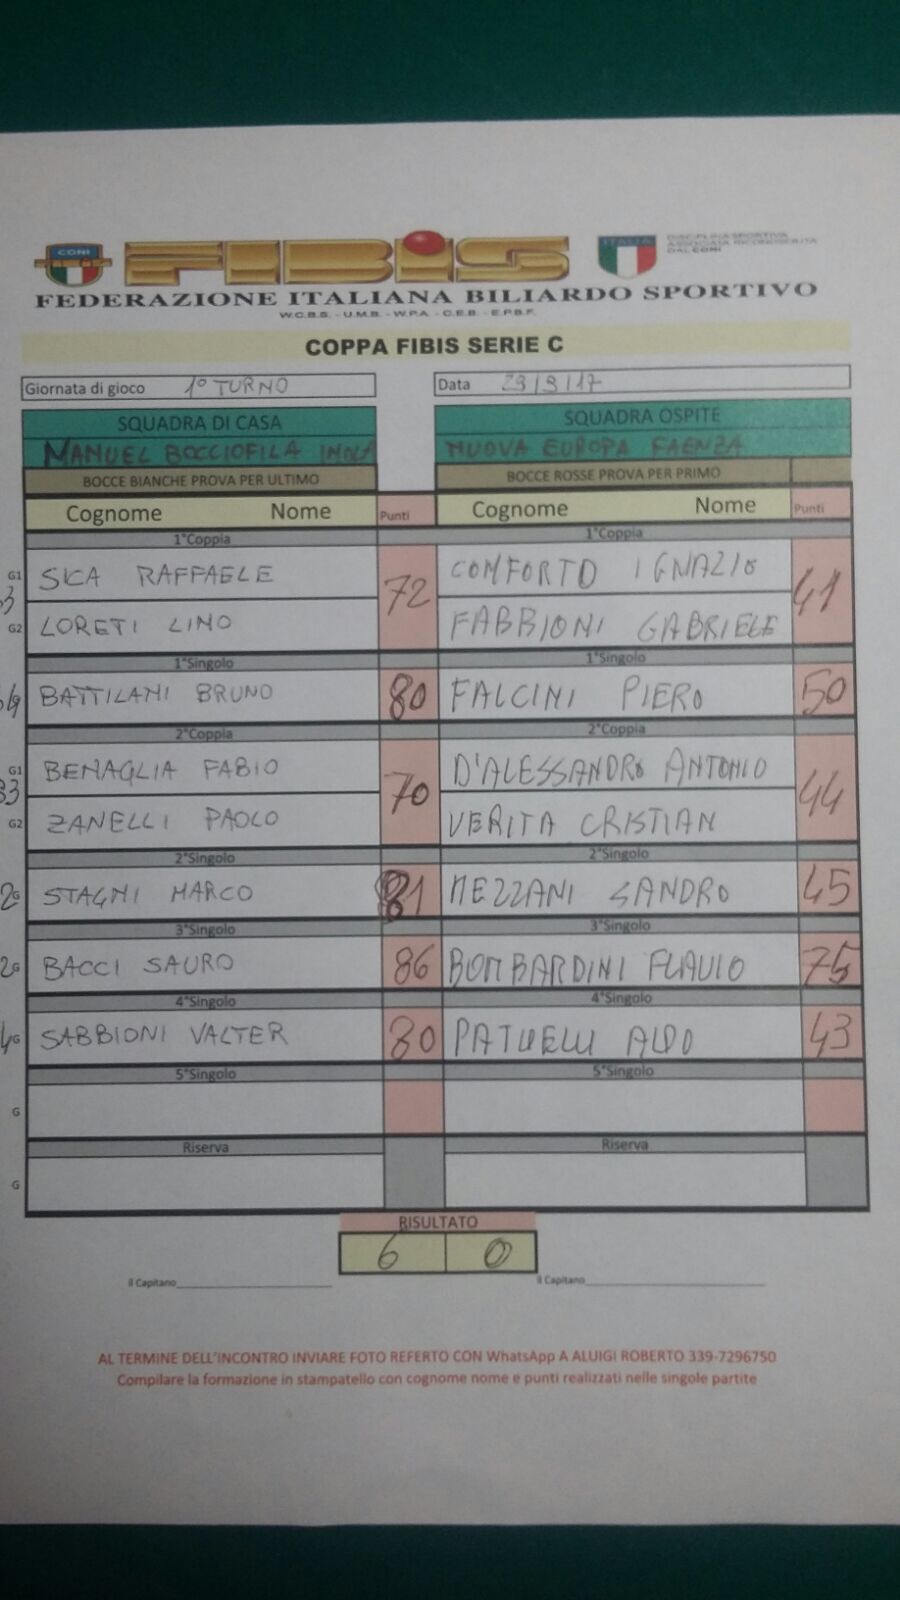 CONI
FIBIS
ITALIA
DISCIPLINA SPORTIVA
ASSOCIATA RICONOSCIUTA
DAL CONI
FEDERAZIONE ITALIANA BILIARDO SPORTIVO
W.C.B.S. - U.M.B. - W.P.A. - C.E.B. - E.P.B.F.
COPPA FIBIS SERIE C
Giornata di gioco 1° TURNO Data
SQUADRA DI CASA SQUADRA OSPITE
MANUEL BOCCIOFILA IMOLA NUOVA EUROPA FAENZA
BOCCE BIANCHE PROVA PER ULTIMO BOCCE ROSSE PROVA PER PRIMO
Cognome Nome Punti Cognome Nome Punti
1°Coppia 1°Coppia
G1 SICA RAFFAELE 72 COMFORTO IGNAZIO 41
G2 LORETI LINO FABBIONI GABRIELE
1°Singolo 1°Singolo
BATTILANI BRUNO 80 FALCINI PIERO 50
2°Coppia 2°Coppia
G1 BENAGLIA FABIO 70 D'ALESSANDRO ANTONIO 44
G2 ZANELLI PAOLO VERITA CRISTIAN
2°Singolo 2°Singolo
G STAGNI MARCO 81 MEZZANI SANDRO 45
3°Singolo 3°Singolo
G BACCI SAURO 86 BOMBARDINI FLAVIO 75
4°Singolo 4°Singolo
G SABBIONI VALTER 80 PATUELLI ALDO 43
5°Singolo 5°Singolo
G
Riserva Riserva
G
RISULTATO
6 0
Il Capitano Il Capitano
AL TERMINE DELL'INCONTRO INVIARE FOTO REFERTO CON WhatsApp A ALUIGI ROBERTO 339-7296750
Compilare la formazione in stampatello con cognome nome e punti realizzati nelle singole partite